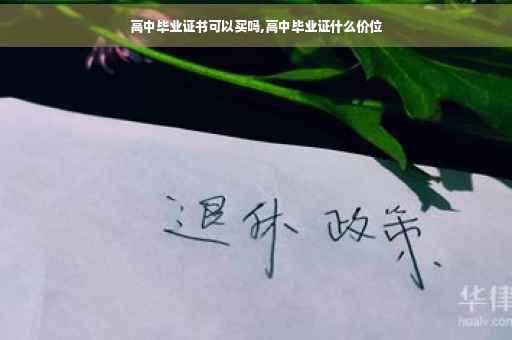 高中毕业证书可以买吗,高中毕业证什么价位
退休 政策
华律
hualv.com